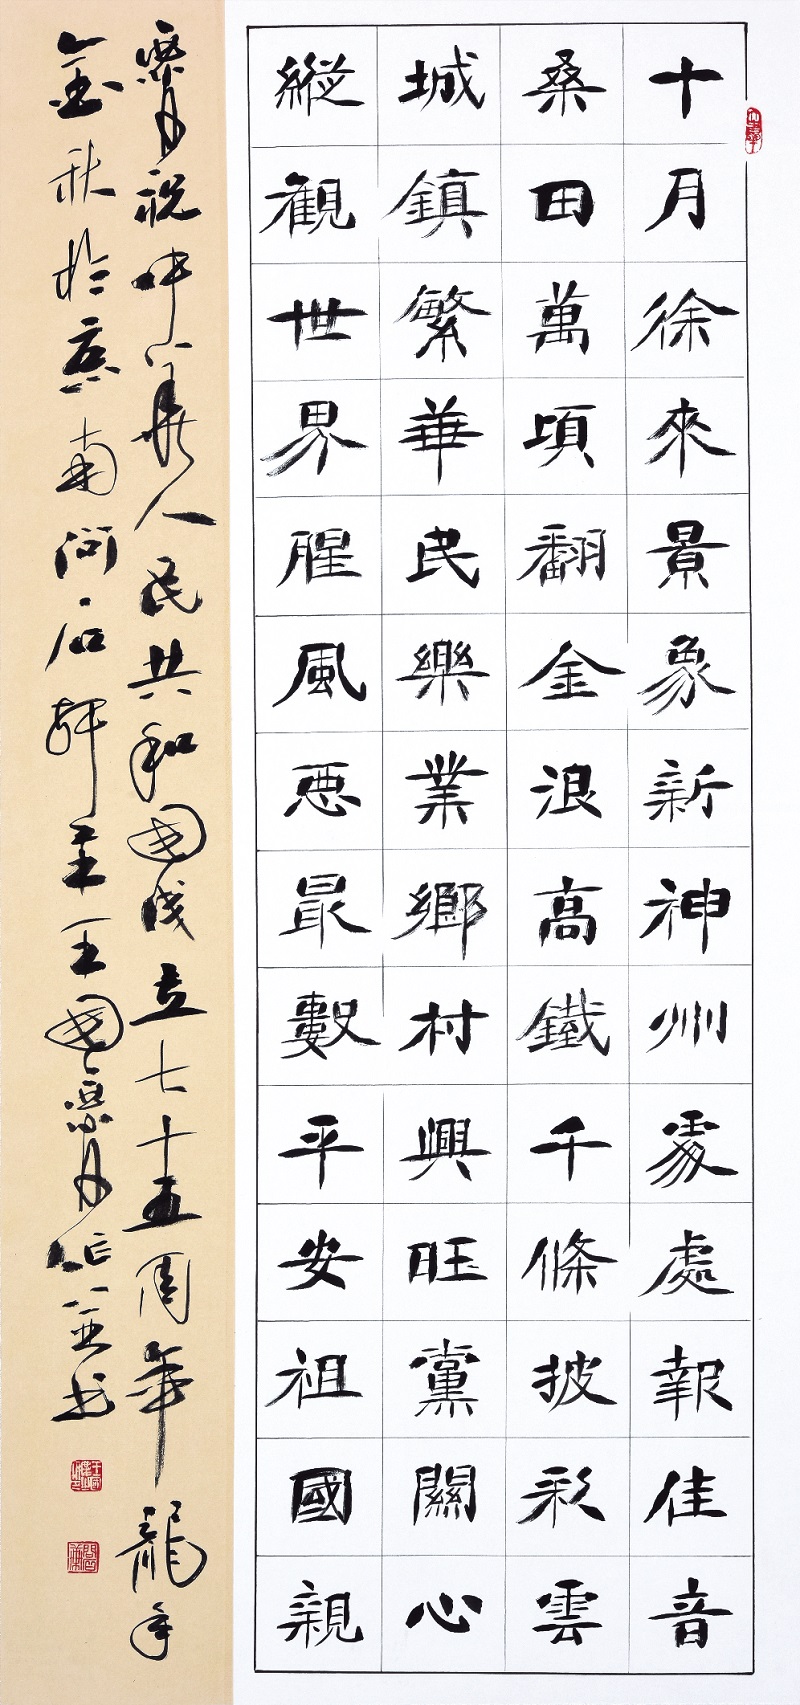 十月徐來景象新神州處處報佳音
桑田萬頃翻金浪高鐵千條披彩雲
城鎮繁華民樂業鄉村興旺黨關心
縱觀世界腥風惡最數平安祖國親
慶祝中華人民共和國成立七十五周年龍年
金秋於京南問石軒主王國慶作並書